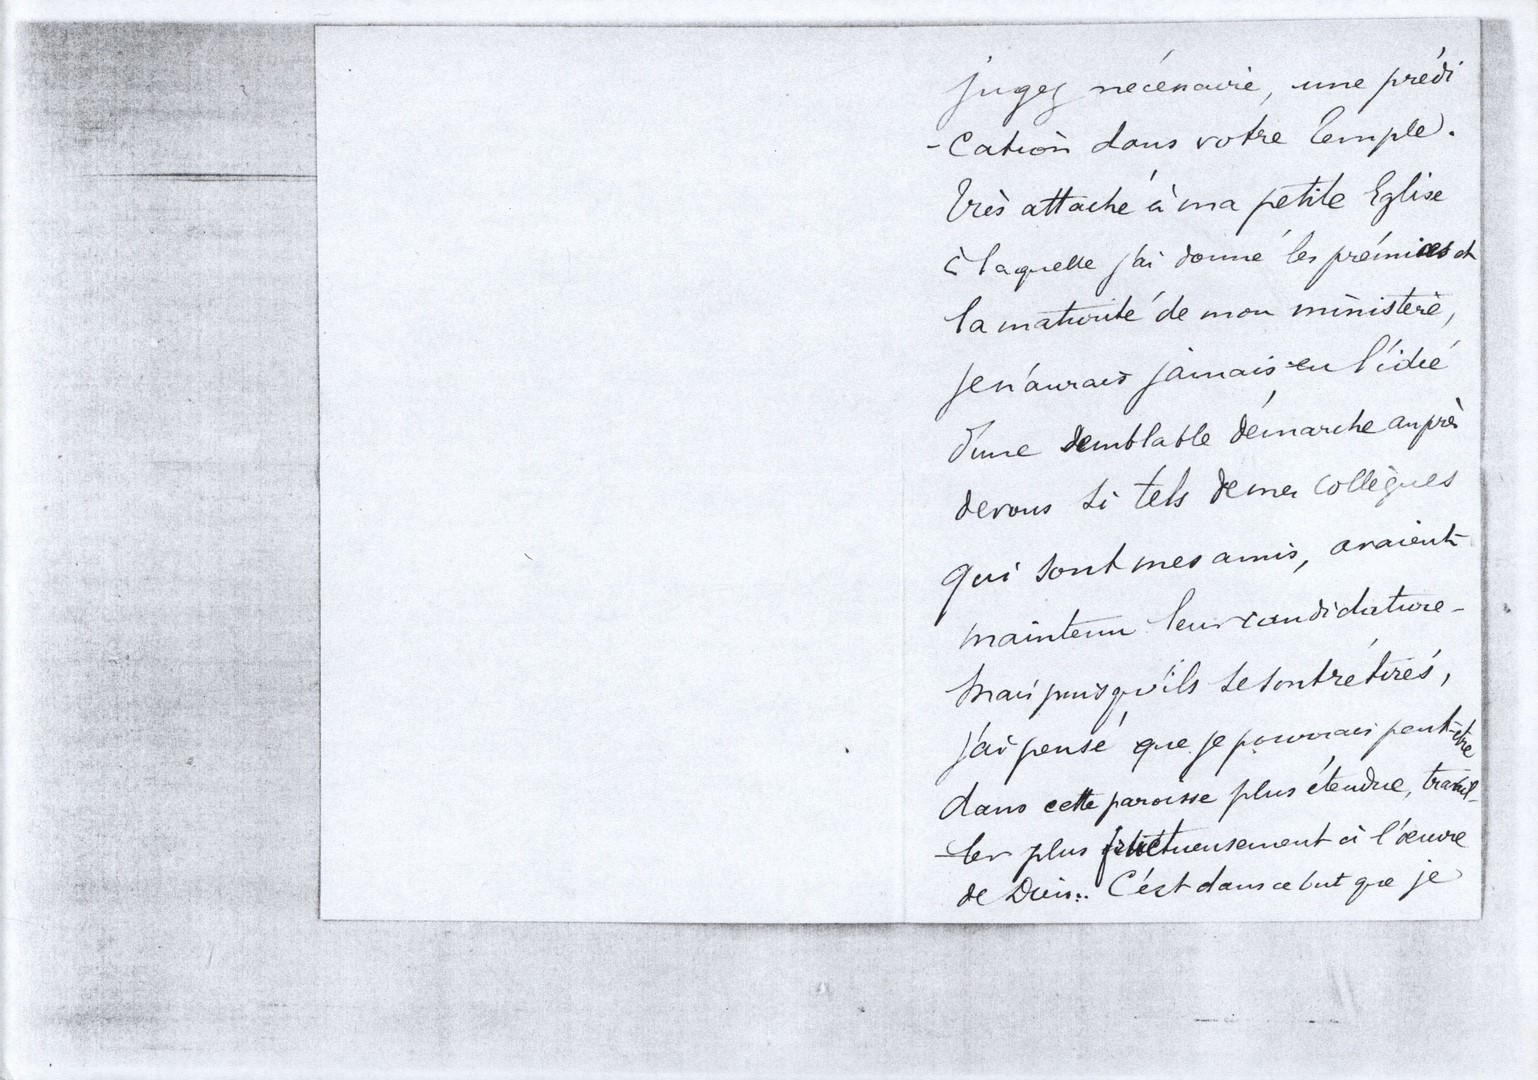 jugez nécessaire, une prédi
-cation dans votre Temple.
Très attaché à ma petite Eglise
à laquelle j'ai donné les prémices et
la maturité de mon ministère,
je n'aurais jamais eu l'idée
d'une semblable démarche auprès
de vous si tels de mes collègues
qui sont mes amis, avaient
maintenu leur candidature -
Mais puisqu'ils se sont retirés,
j'ai pensé que je pourrais peut-être
dans cette paroisse plus étendue, travail-
-ler plus fructueusement à l'œuvre
de Dieu.. C'est dans ce but que je